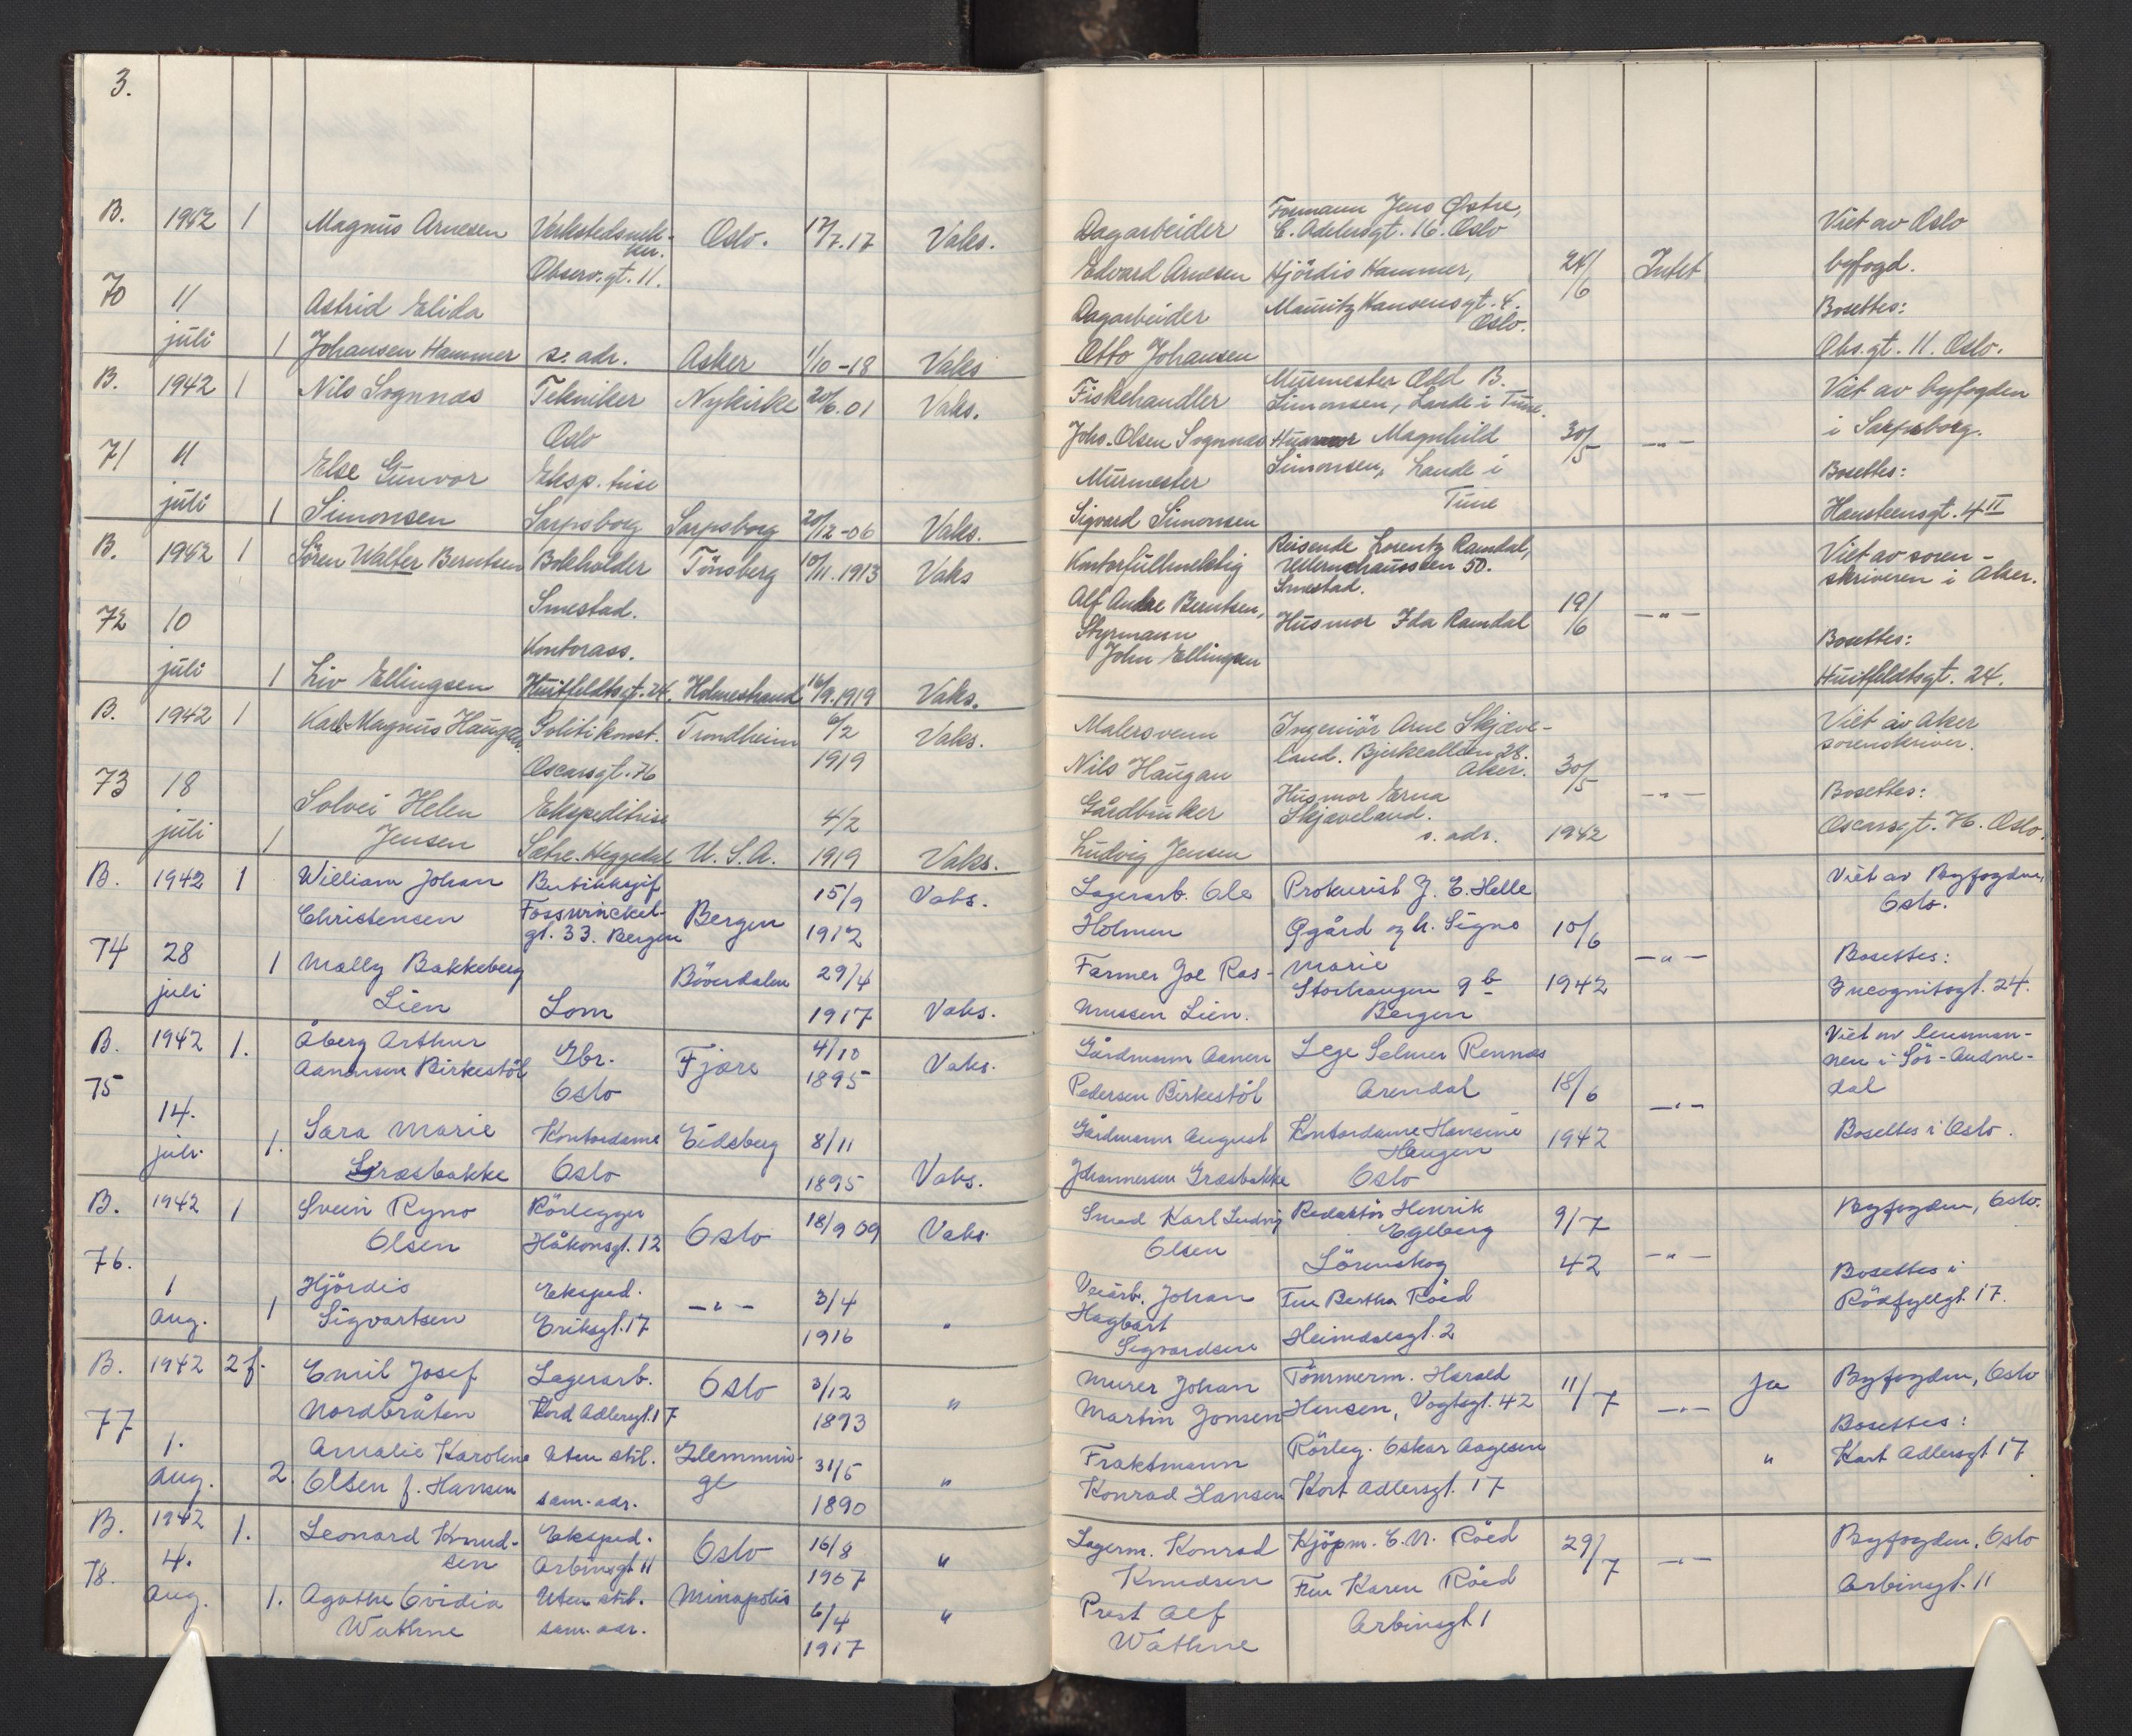 3.
B. 1942 1 Magnus Arnesen Verkstedsmek- Oslo. 17/7.17 Vaks. Dagarbeider Formann Jens Østre, Viet av Oslo
Observ.gt. 11. C. Adelersgt. 16. Oslo
Edvard Arnesen Hjördis Hammer, 24/6 Intet byfogd.
70 11 Astrid Elida Dagarbeider Mauritz Hansensgt. 4. Oslo. Bosettes:
juli 1 Johansen Hammer s. adr. Asker 1/10-18 Vaks Otto Johansen Obs.gt. 11. Oslo.
B. 1942 1 Nils Sognnæs Tekniker Nykirke 20/6.01 Vaks. Fiskehandler Murmester Odd B. Viet av byfogden
Oslo Simonsen, Lande i Tune. i Sarpsborg.
71 11 Else Gunvor Eksp.trise Johs. Olsen Sognnæs Husmor Magnhild 30/5 -"-
Murmester Simonsen, Lande i Tune Bosettes:
juli 1 Simonsen Sarpsborg Sarpsborg 20/12-06 Vaks. Sigvard Simonsen Hansteensgt. 4 II
B. 1942 1 Sören Walter Berntsen Bokholder Tönsberg 10/11.1913 Vaks Kontorfullmektig Reisende Lorentz Ramdal, Viet av soren-
Smestad. Ullernchausseen 50. skriveren i Aker.
Smestad.
72 10 Kontorass. Alf Andre Berntsen, Husmor Ida Ramdal 19/6 -"-
Styrmann Bosettes:
juli 1 Liv Ellingsen Huitfeldtsgt. 24. Holmestrand 16/9.1919 Vaks. John Ellingsen Huitfeldtsgt. 24.
B. 1942 1 Karl Magnus Haugan Politikonst. Trondheim 6/2 Vaks. Malersvenn Ingeniör Arne Skjæve- Viet av Aker
Oscarsgt. 76 1919 Nils Haugan land. Bjerkealleen 28. Aker. 30/5 sorenskriver.
73 18 Solvei Helen Ekspeditrise 4/2 Gårdbruker Husmor Erna -"- Bosettes:
juli 1 Jensen Sætre. Heggedal U.S.A. 1919 Vaks. Ludvig Jensen Skjæveland. s. adr. 1942 Oscarsgt. 76. Oslo.
B. 1942 1 William Johan Butikksjef 15/9 Vaks. Lagerarb. Ole Prokurist J. E. Helle Viet av Byfogden,
Christensen Fosswinckel- Bergen 1912 Holmen Øgård og h. Signe 10/6 Oslo.
gt. 33. Bergen
74 28 1 Mally Bakkeberg Böverdalen 29/4 Farmer Joe Ras- Marie -"- Bosettes:
juli Lien Lom 1917 Vaks. mussen Lien. Storhaugen 9 b 1942 Incognitogt. 24.
Bergen
B. 1942 1. Åberg Arthur Gbr. Fjære 4/10 Vaks. Gårdmann Aanen Lege Selmer Rennes Viet av lensman-
75 Aanonsen Birkestöl Oslo 1895 Pedersen Birkestöl Arendal 18/6 -"- nen i Sör-Audne-
dal
14. Sara Marie Kontordame Eidsberg 8/11 Gårdmann August Kontordame Hansine 1942 Bosettes i Oslo.
juli. 1. Græsbakke Oslo 1895 Vaks. Johannessen Græsbakke Haugen
Oslo
B. 1942 1 Svein Ryno Rörlegger Oslo 18/9 09 Vaks. Smed Karl Ludvig Redaktör Henrik 9/7 Byfogden, Oslo.
76. Olsen Håkonsgt. 12 Olsen Egeberg
Lörenskog 42 -"-
1 Hjördis Eksped. -"- 3/4 Veiarb. Johan Fru Bertha Röed Bosettes i
aug. 1 Sigvartsen Eriksgt. 17 1916 " Hagbart Heimdalsgt. 2 Rödfyllgt. 17.
Sigvardsen
B. 1942 2 f. Emil Josef Lagerarb. Oslo 3/12 " Murer Johan Tömmerm. Harald 11/7 -"- Ja Byfogden, Oslo
77 Nordbråten Kord Adlersgt. 17 1893 Martin Jonsen Hansen, Vogtsgt. 42 Bosettes:
1. Amalie Karoline Uten stil. Glemmin- 31/5 " Fraktmann Rörleg. Oskar Aagesen " Kort Adlersgt 17
aug. 2. Olsen f. Hansen sam. adr. ge 1890 Konrad Hansen Kort Adlersgt. 17
B. 1942 1. Leonard Knud- Eksped. Oslo 16/8 " Lagerm. Konrad Kjöpm. C. N. Röed 29/7 -"- Byfogden, Oslo
78. 4. sen Arbinsgt 11 1907 Knudsen Fru Karen Röed Arbinsgt. 11
aug. 1. Agathe Ovidia Uten stil. Minapolis 6/4 " Prest Alf Arbinsgt. 1
Wathne sam. adr. 1917 Wathne